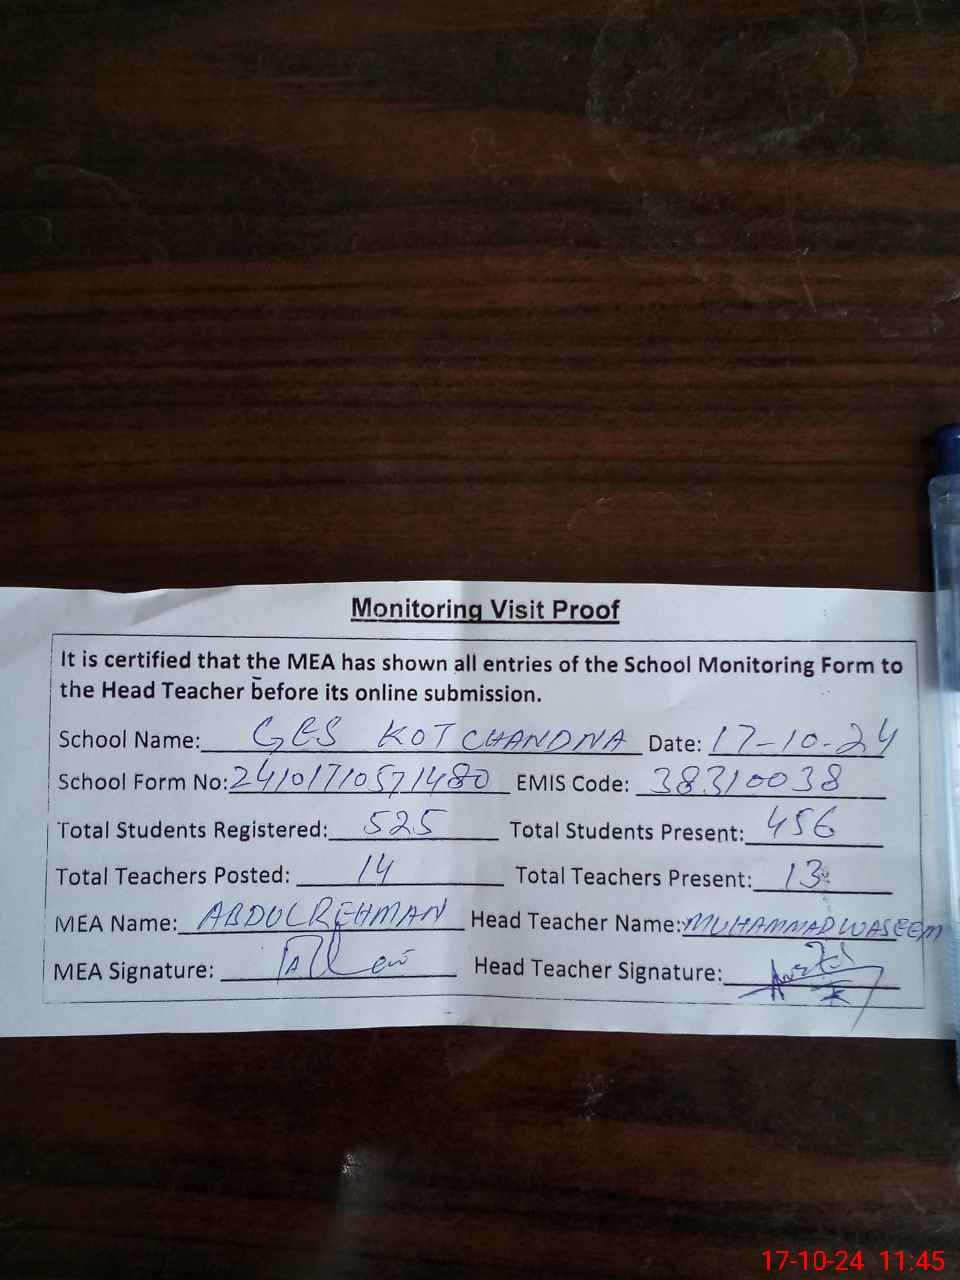 Monitoring Visit Proof
It is certified that the MEA has shown all entries of the School Monitoring Form to
the Head Teacher before its online submission.
School Name: GES KOT CHANDNA Date: 17-10-24
School Form No: 24101710571480 EMIS Code: 38310038
Total Students Registered: 525 Total Students Present: 456
Total Teachers Posted: 14 Total Teachers Present: 13
MEA Name: ABDULREHMAN Head Teacher Name: MUHAMMAD WASEEM
MEA Signature: Head Teacher Signature:
17-10-24 11:45